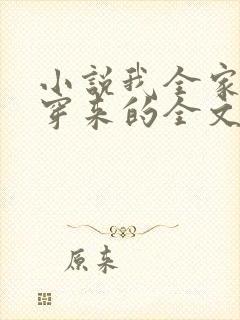 小说我全家
穿来的全文
原来